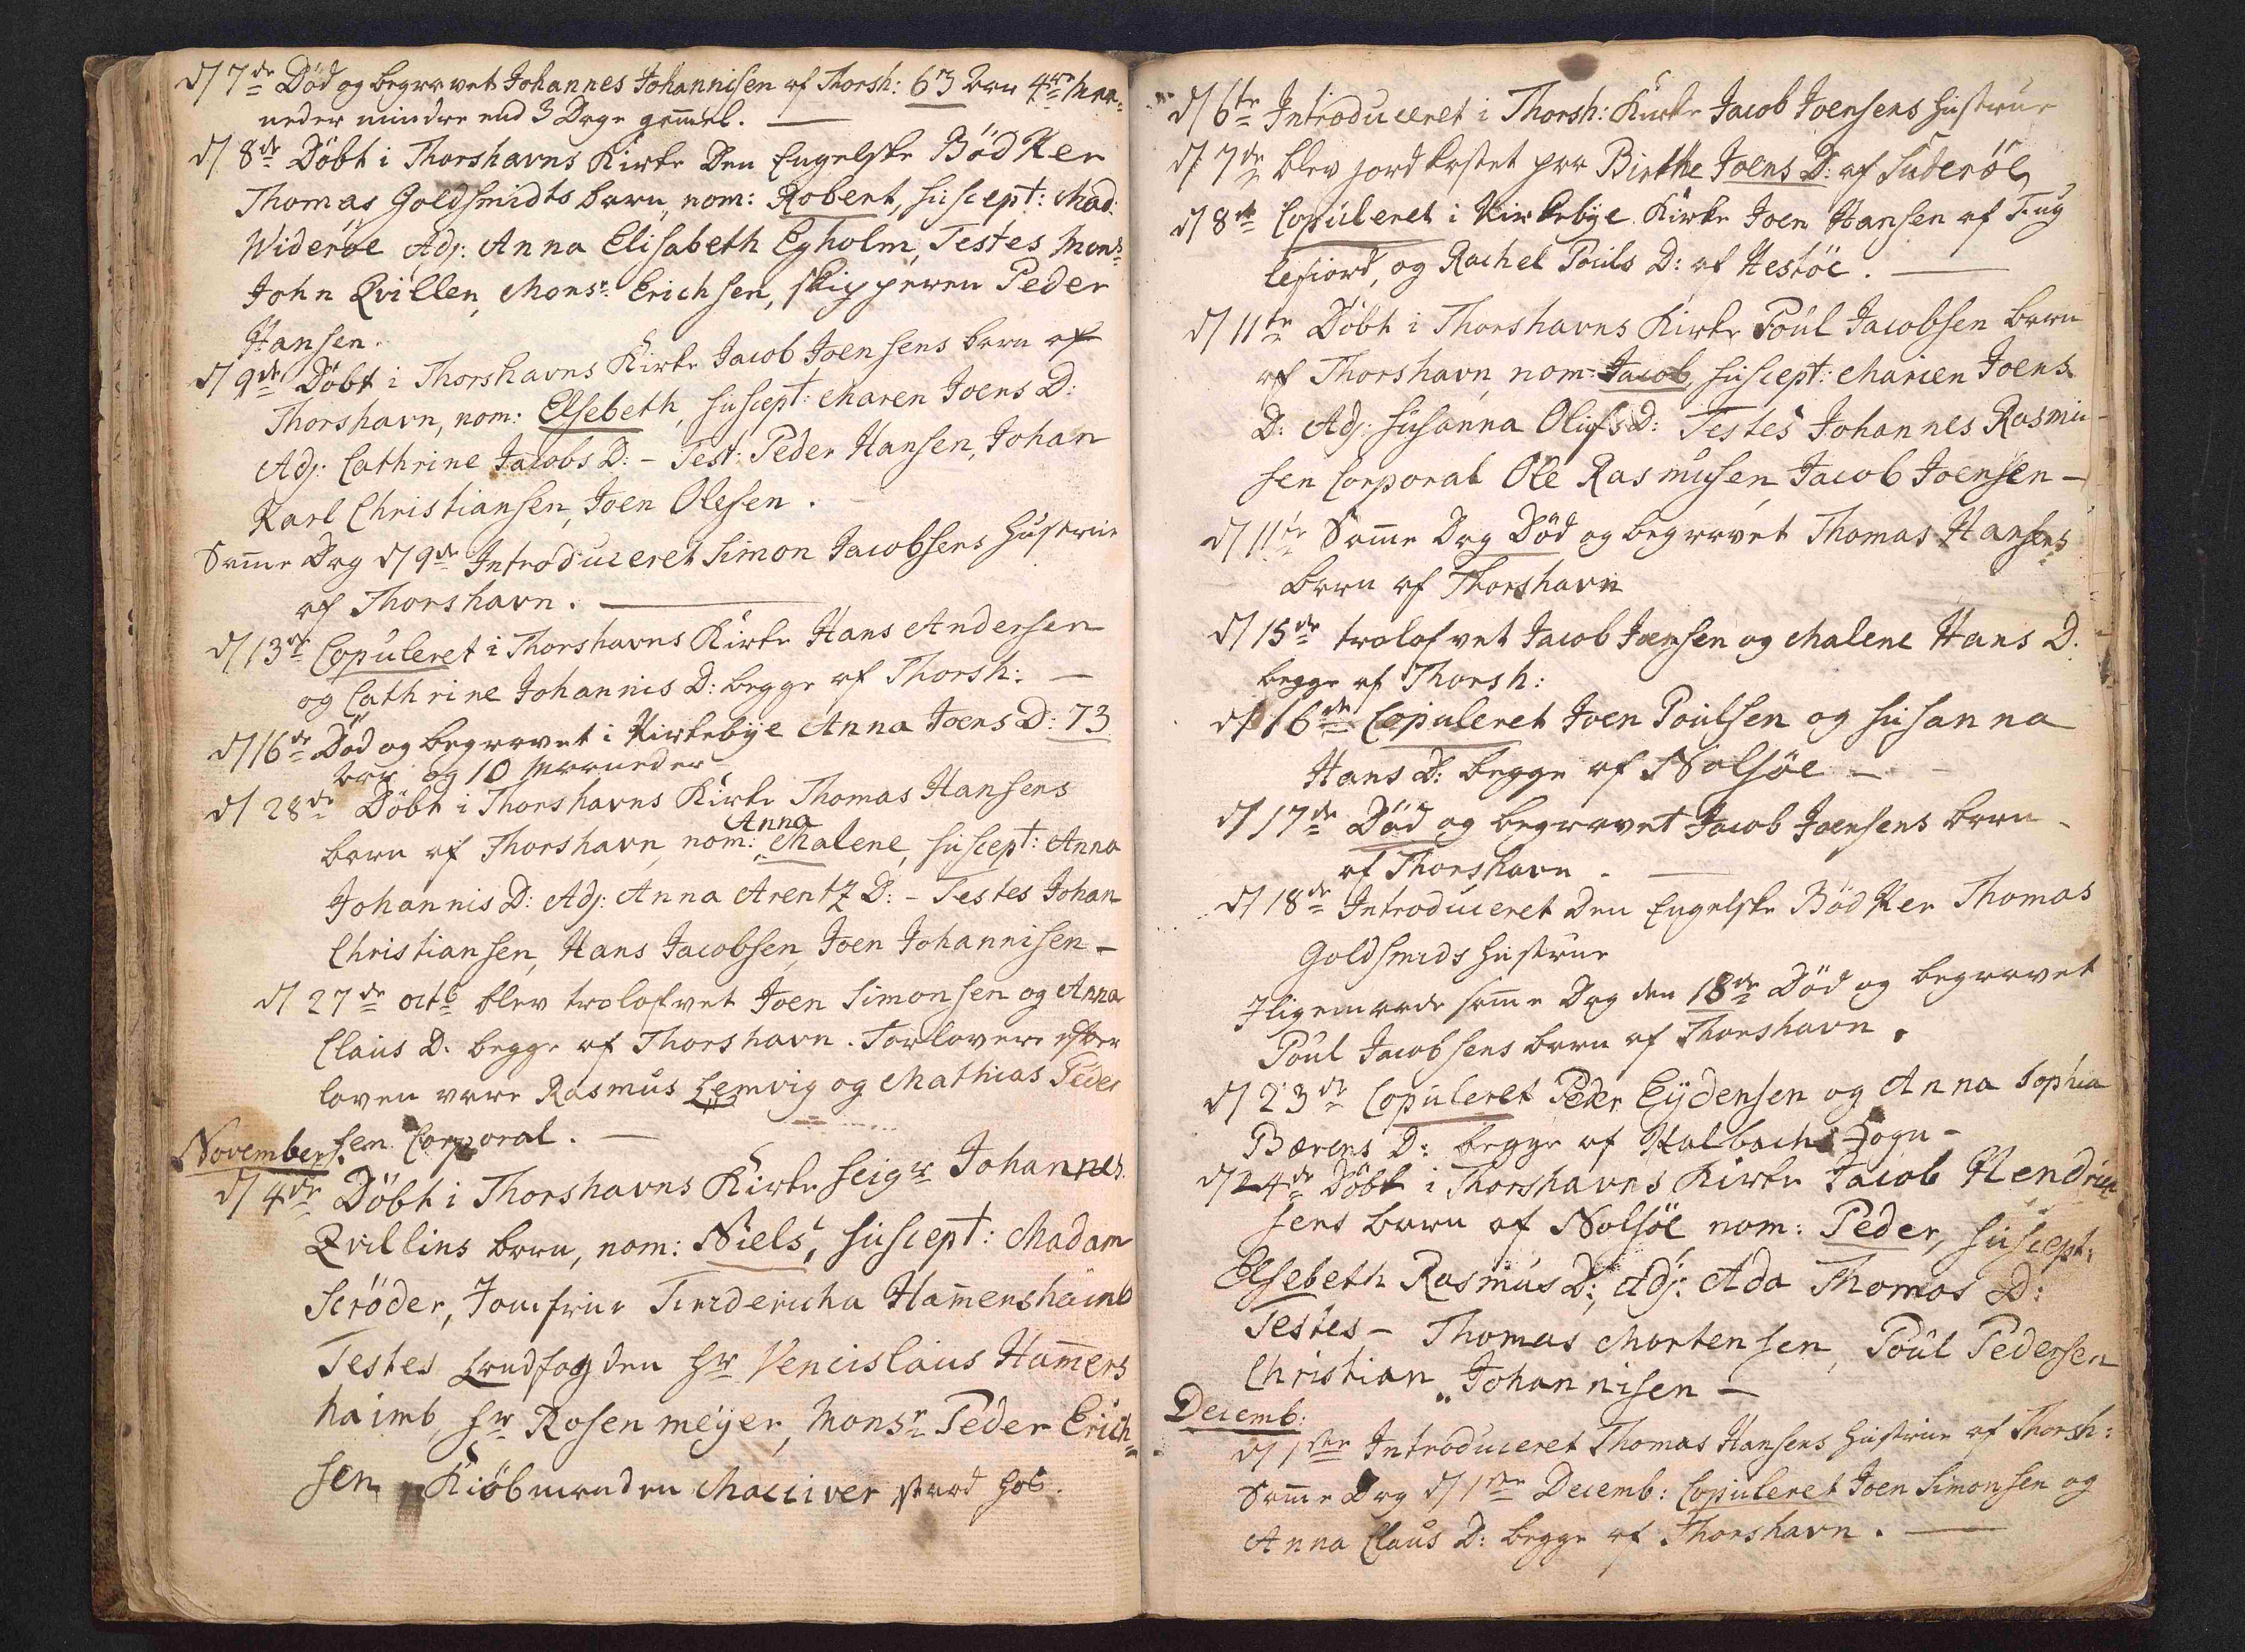 d/ 7de Död og begravet Johannes Johannisen af Thorsh: 63 aar 4re Maa-
neder mindre end 3 Dage gam̄el.
d/ 8de Döbt i Thorshavns Kirke Den Engelske Bödker
Thomas Goldsmidts barn, nom: Robert, suscept: Mad:
Wideröe Adj: Anna Elisabeth Egholm, Testes Monsr
John Qvillen, Monsr Erichsen, skipperen Peder
Hansen.
d/ 9de Döbt i Thorshavns Kirke Jacob Joensens barn af
Thorshavn, nom: Elsebeth, suscept: Maren Joens D:
Adj: Cathrine Jacobs D: - Test: Peder Hansen, Johan
Karl Christiansen, Joen Olesen.
Sam̄e Dag d/ 9de Introduceret Simon Jacobsens Hustrue
af Thorshavn.
d/ 13de Copuleret i Thorshavns Kirke Hans Andersen
og Cathrine Johannis D: begge af Thorsh: -
d/ 16de Död og begravet i Kirkebÿe Anna Joens D: 73
aar og 10 Maaneder
d/ 28de Döbt i Thorshavns Kirke Thomas Hansens
Anna
barn af Thorshavn, nom: Malene, suscept: Anna
Johannis D: Adj: Anna Arentz D: - Testes Johan
Christiansen, Hans Jacobsen, Joen Johannisen -
d/ 27de octb blev trolofvet Joen Simonsen og Anna
Claus D. begge af Thorshavn. Forlovere efter
loven vare Rasmus Lemvig og Mathias Peder
November sen Corporal. -
d/ 4de Döbt i Thorshavns Kirke Seigr Johannes
Qvillins barn, nom: Niels, suscept: Madam
Scröder, Jomfrue Fredericha Ham̄ershaimb
Testes Landfogden Hr Vencislaus Ham̄ers
haimb, Hr Rosenmeÿer, Monsr Peder Erich-
sen, Kiöbmanden Macciver stard hos.
d/ 6te Introduceret i Thorsh: Kirke Jacob Joensens Hustrue
d/ 7de blev jordkastet paa Birthe Joens D: af Suderöe
d/ 8de Copuleret i Kirkebÿe Kirke Joen Hansen af Fug
lefiord, og Rachel Pouls D: af Hestöe. -
d/ 11te Döbt i Thorshavns Kirke Poul Jacobsen barn
af Thorshavn nom: Jacob, suscept: Marien Joens
D: Adj: Susanna Olufs D: Testes Johannes Rasmu-
sen Corporal Ole Rasmusen, Jacob Joensen -
d/ 11te Sam̄e Dag Död og begravet Thomas Hansens
barn af Thorshavn
d/ 15de trolofvet Jacob Joensen og Malene Hans D.
begge af Thorsh:
d/ 16de Copuleret Joen Poulsen og Susanna
Hans D: begge af Nolsöe -
d/ 17de Död og begravet Jacob Joensens barn
af Thorshavn. -
d/ 18de Introduceret Den Engelske Bödker Thomas
Goldsmids Hustrue
Iligemaade sam̄e Dag den 18de Död og begravet
Poul Jacobsens barn af Thorshavn.
d/ 23de Copuleret Peder Eÿdensen og Anna Sophia
Bærens D: begge af Kalbachs Sogn -
d/ 24de Döbt i Thorshavns Kirke Jacob Hendrich
sens barn af Nolsöe nom: Peder, suscept:
Elsebeth Rasmus D:, Adj: Ada Thomas D:
Testes - Thomas Mortensen, Poul Pedersen
Christian Johannisen -
Decemb:
d/ 1ste Introduceret Thomas Hansens Hustrue af Thorsh:
Sam̄e Dag d/ 1ste Decemb: Copuleret Joen Simonsen og
Anna Claus D: begge af Thorshavn. -